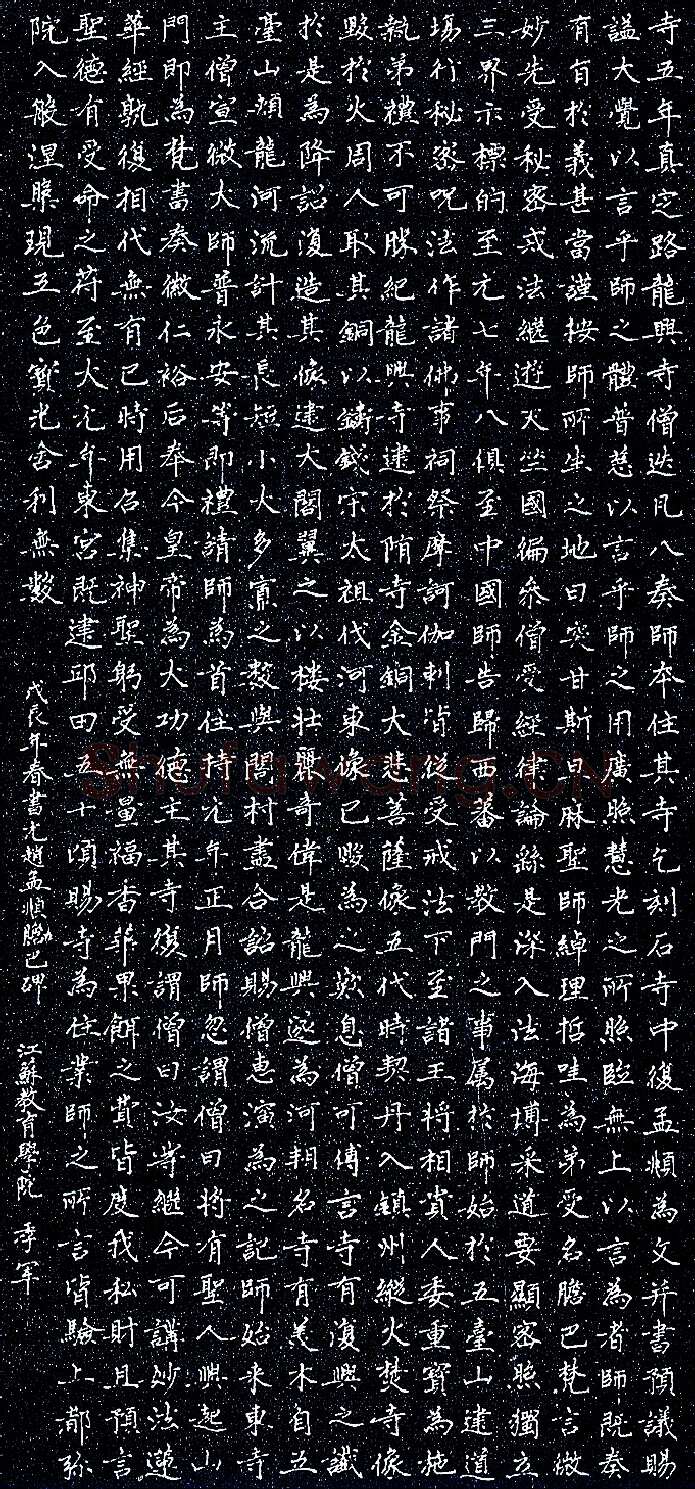 寺五年真定路龍興寺僧迭凡八奏師本住其寺乞刻石寺中復孟頫為文并書預議賜
謚大覺以言乎師之體普慈以言乎師之用廣照慧光之所照臨無上以言為者師既奏
有旨於義甚當謹按師所生之地曰突甘斯旦麻聖師綽理哲哇為弟受名膽巴梵言微
妙先受秘密戒法繼遊天竺國徧參僧受經律論繇是深入法海博采道要顯密照獨立
三界示標的至元七年八俱至中國師告歸西蕃以教門之事属於師始於五臺山建道
場行秘密呪法作諸佛事祠祭摩訶伽剌皆從受戒法下至諸王將相貴人委重寶為施
執弟禮不可勝紀龍興寺建於隋寺金銅大悲菩薩像五代時契丹入鎮州縱火焚寺像
毀於火周人取其銅以鑄錢宋太祖伐河東像已毀為之歎息僧可傳言寺有復興之讖
於是為降詔復造其像建大閣翼之以楼壯麗奇偉是龍興遂為河朔名寺有美木自五
臺山頰龍河流計其長短小大多寡之數與閣村盡合詔賜僧惠演為之記師始来東寺
主僧宣微大師普永安等即禮請師為首住持元年正月師忽謂僧曰將有聖人興起山
門即為梵書奏微仁裕后奉今皇帝為大功德主其寺復謂僧曰汝等繼今可講妙法蓮
華經孰復相代無有已時用召集神聖躬受無量福香華果餌之費皆度我私財且預言
聖德有受命之符至大元年東宮既建邱田五十頃賜寺為住業師之所言皆驗上都弥
院入般涅槃現五色寶光舍利無數
戊辰年春書元趙孟頫膽巴碑 江蘇教育學院 李軍
Shufawang.CN